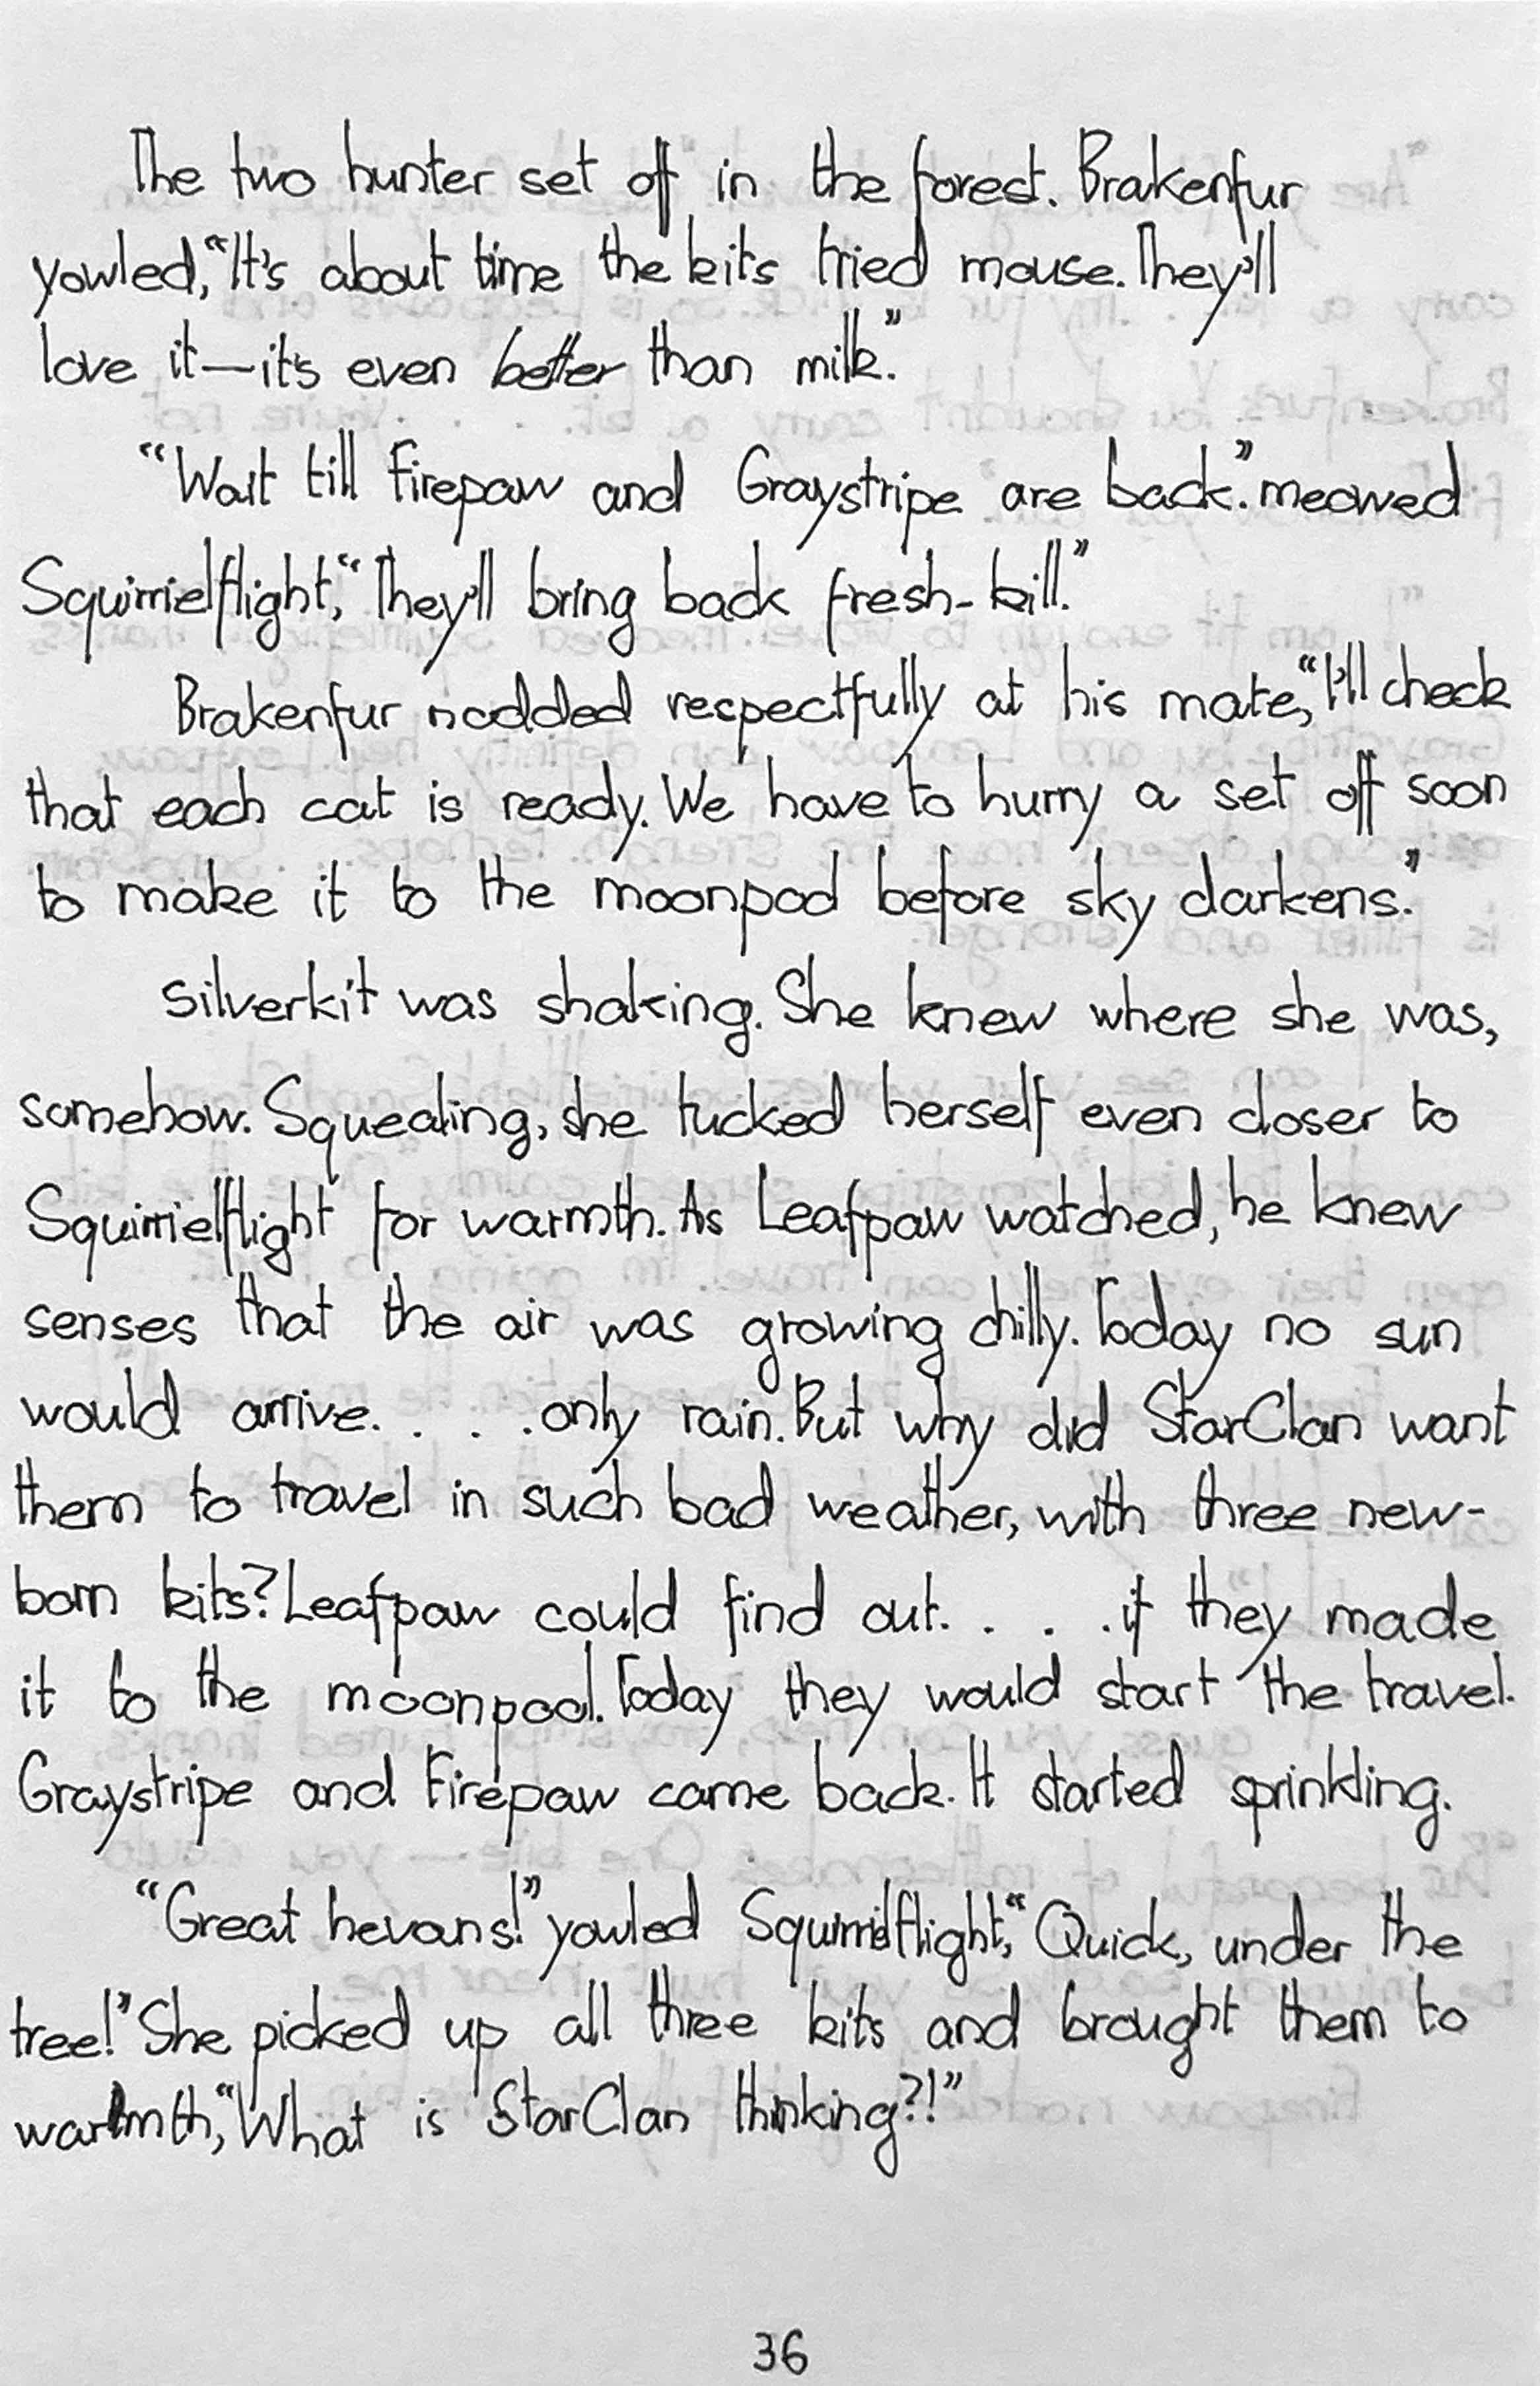 The two hunter set off in the forest. Brakenfur
yowled, “It's about time the kits tried mouse. They'll
love it—it's even better than milk.”
“Wait till Firepaw and Graystripe are back.” meowed
Squirrielflight, “They'll bring back fresh-kill.”
Brakenfur nodded respectfully at his mate, “I'll check
that each cat is ready. We have to hurry a set off soon
to make it to the moonpod before sky darkens.”
Silverkit was shaking. She knew where she was,
somehow. Squealing, she tucked herself even closer to
Squirrielflight for warmth. As Leafpaw watched, he knew
senses that the air was growing chilly. Today no sun
would arrive. . . . only rain. But why did StarClan want
them to travel in such bad weather, with three new-
born kits? Leafpaw could find out. . . . if they made
it to the moonpool. Today they would start the travel.
Graystripe and Firepaw came back. It started sprinkling.
“Great hevans!” yowled Squirrielflight, “Quick, under the
tree!” She picked up all three kits and brought them to
warmth, “What is StarClan thinking?!”
36